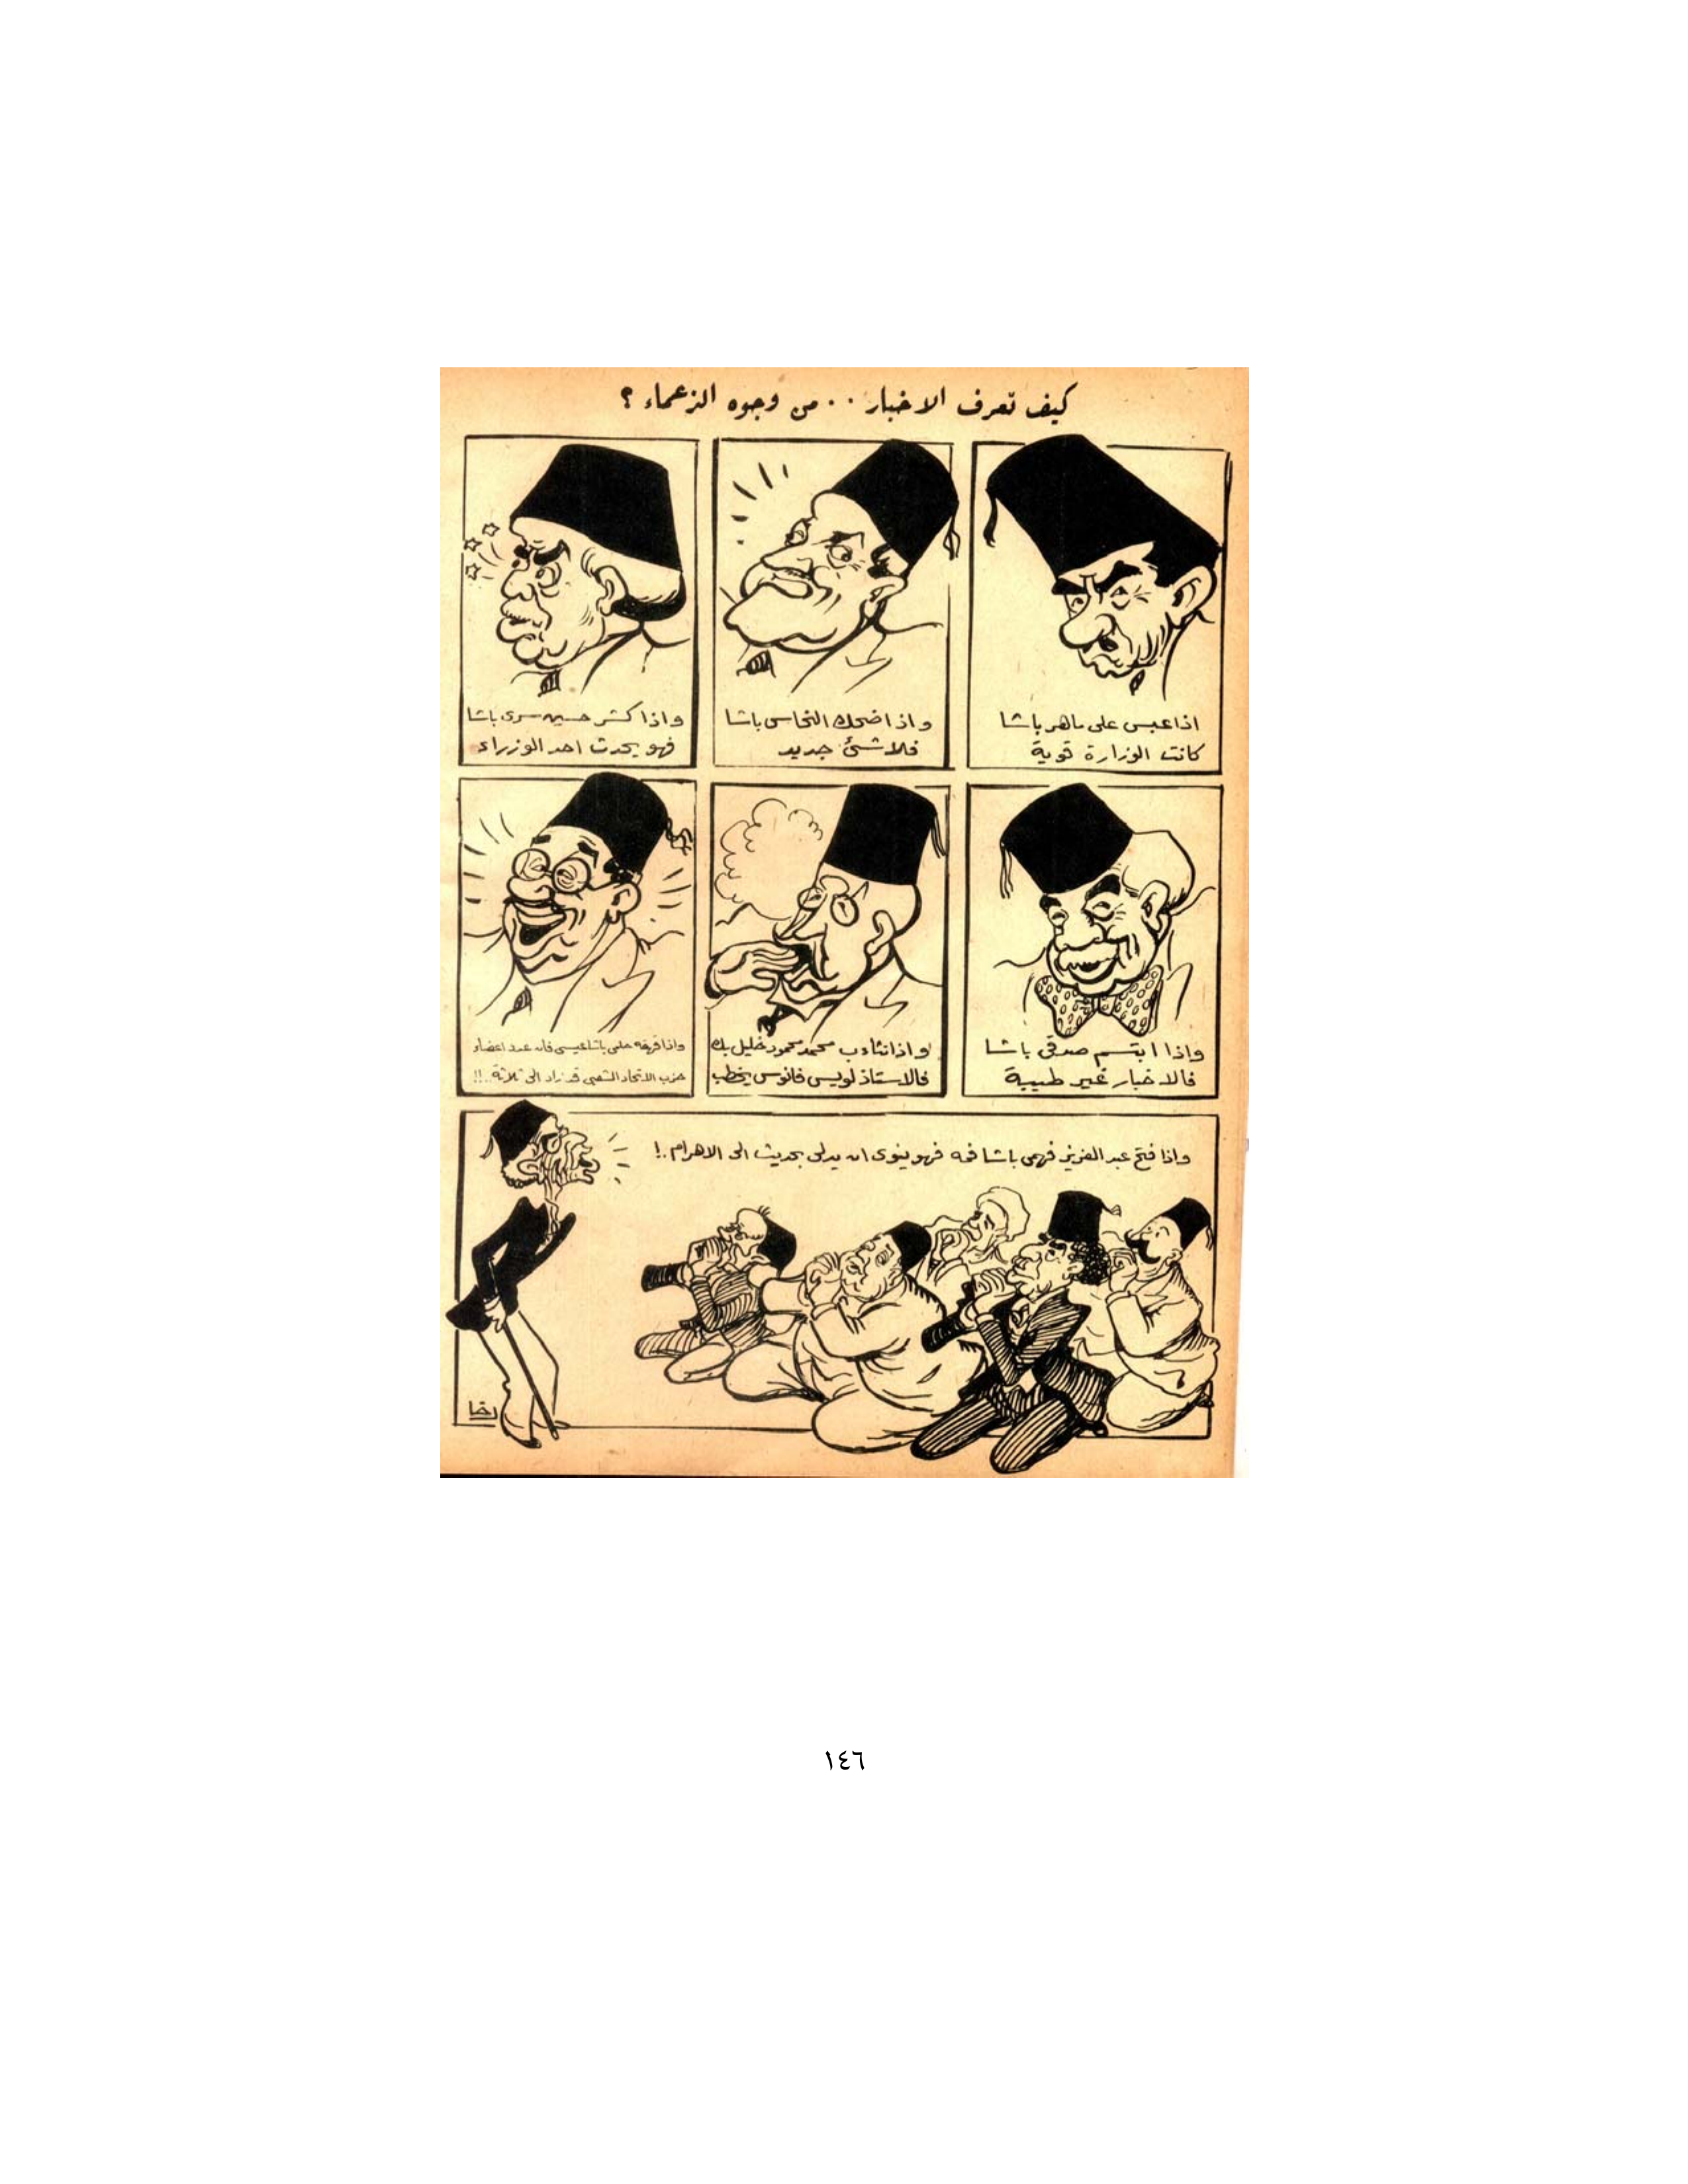 كيف تعرف الاخبار . . من وجوه الزعماء ؟
اذا عبس على ماهر باشا
كانت الوزارة قوية
واذا ضحك النحاس باشا
فلا شئ جديد
واذا كشر حسين سرى باشا
فهو يحدث احد الوزراء
واذا ابتسم صدقى باشا
فالاخبار غير طيبة
واذا تثاءب محمد محمود خليل بك
فالاستاذ لويس فانوس يخطب
واذا قهقه حلمى باشا عيسى فان عدد اعضاء
حزب الاتحاد الشعبى قد زاد الى ثلاثة . !!
واذا فتح عبد العزيز فهمى باشا فمه فهو ينوى ان يدلى بحديث الى الاهرام . !
رخا
١٤٦